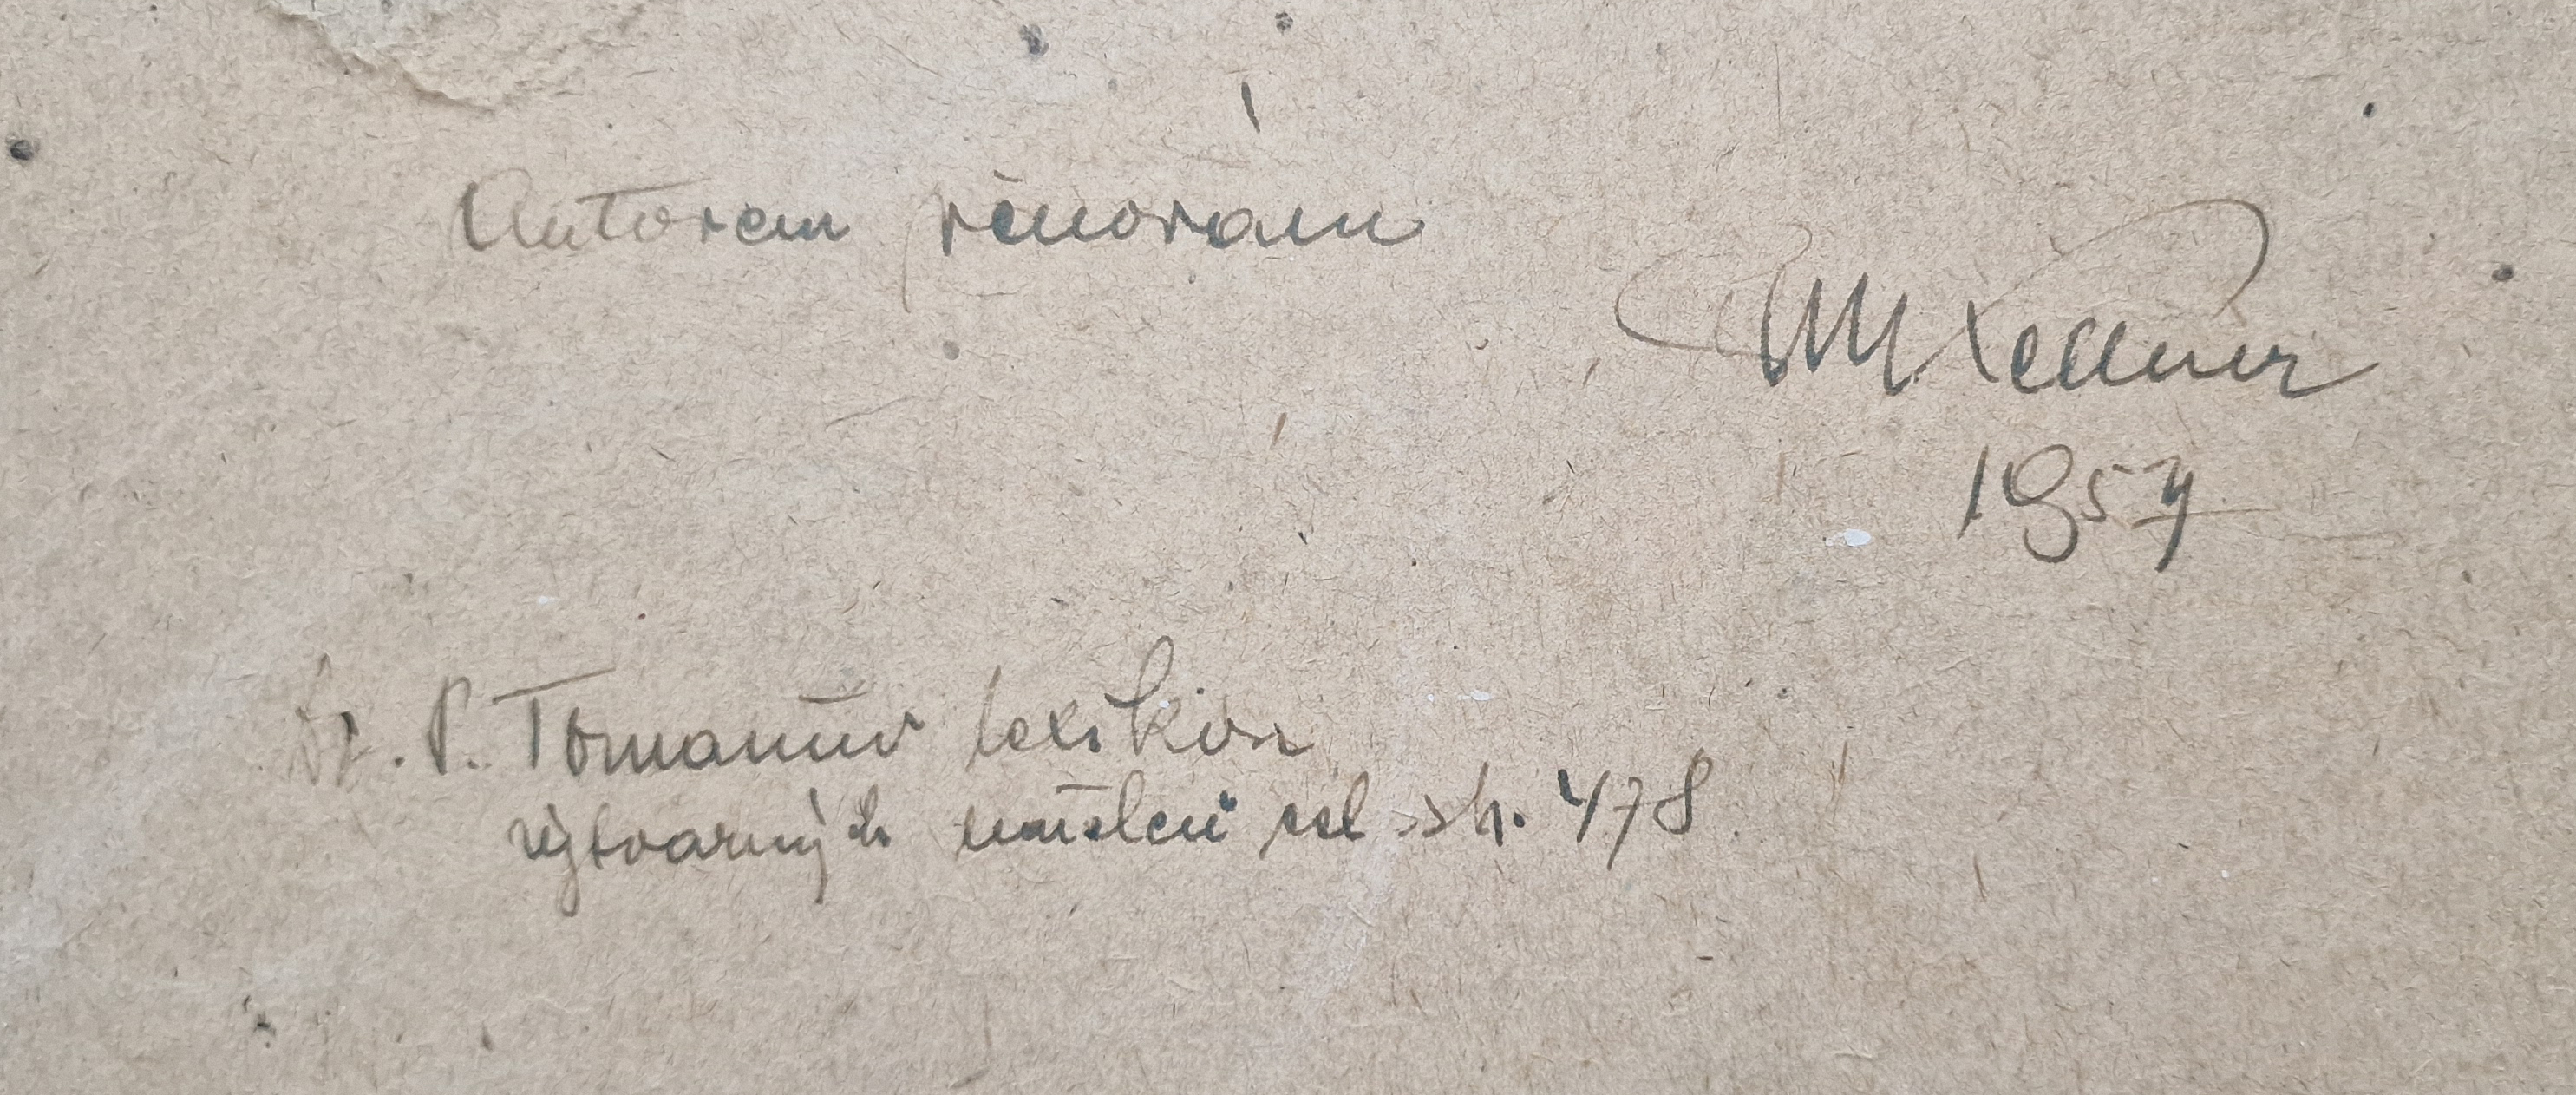 Autorem věnováno
M Kellner
1957
Dr. P. Tomanův lexikon
výtvarných umělců str. 478